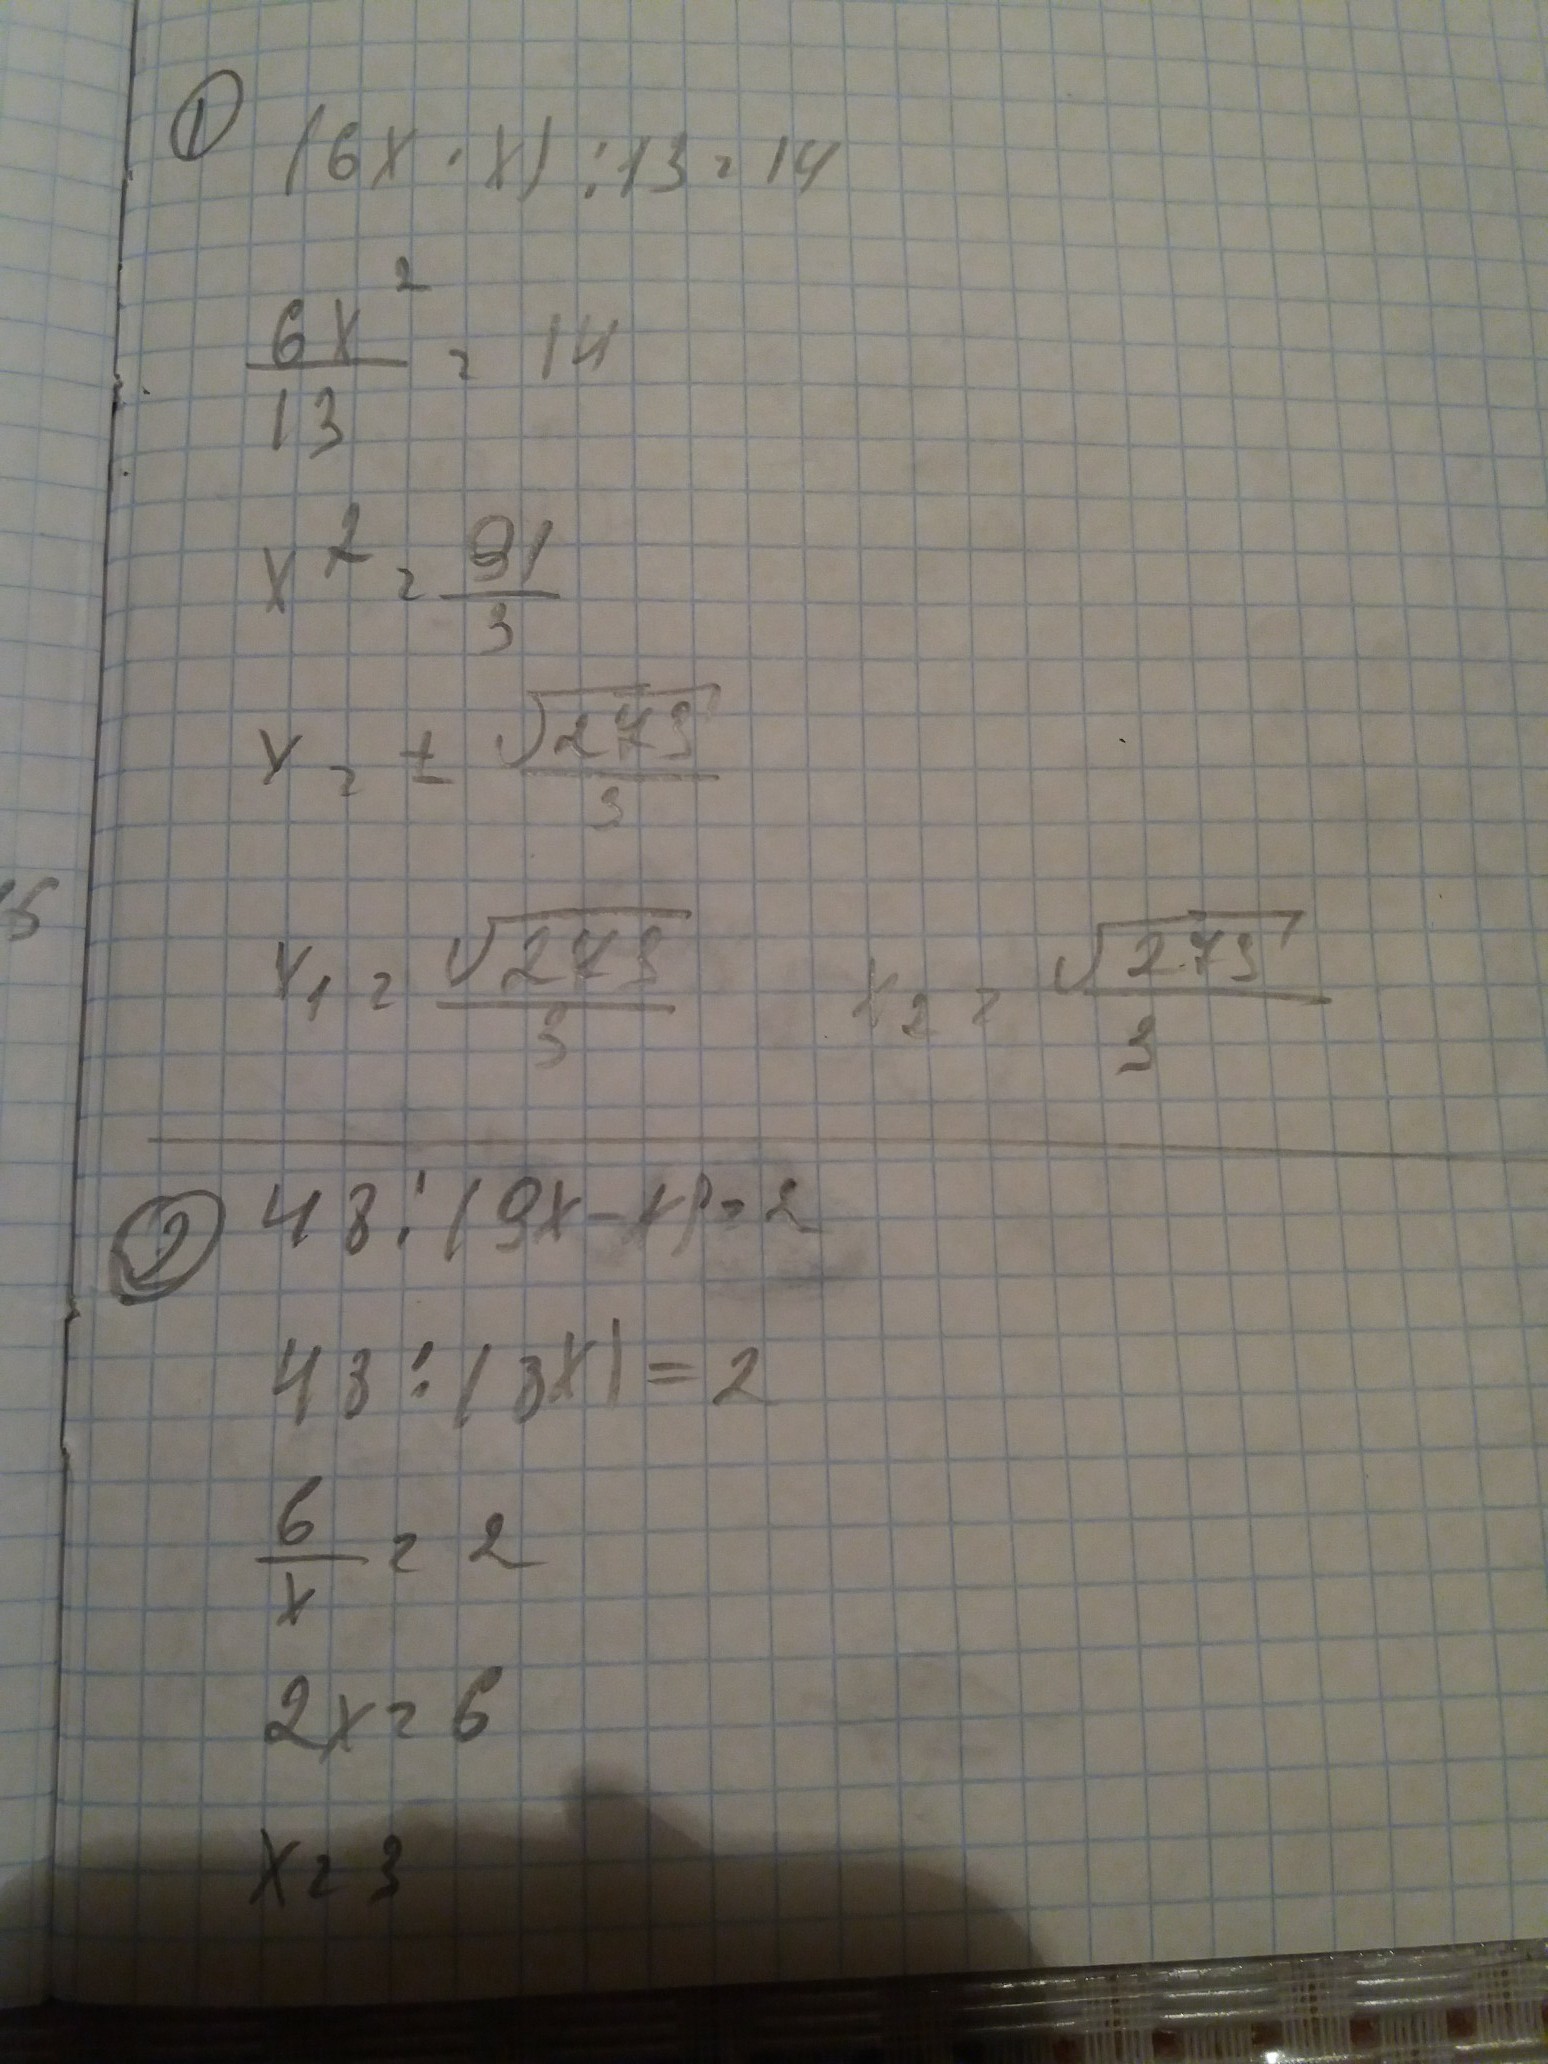 1
(6x · x) : 13 = 14
6x²/13 = 14
x² = 91/3
x = ± √273/3
x₁ = √273/3 x₂ = √273/3
2
48 : (9x - x) = 2
48 : (8x) = 2
6/x = 2
2x = 6
x = 3